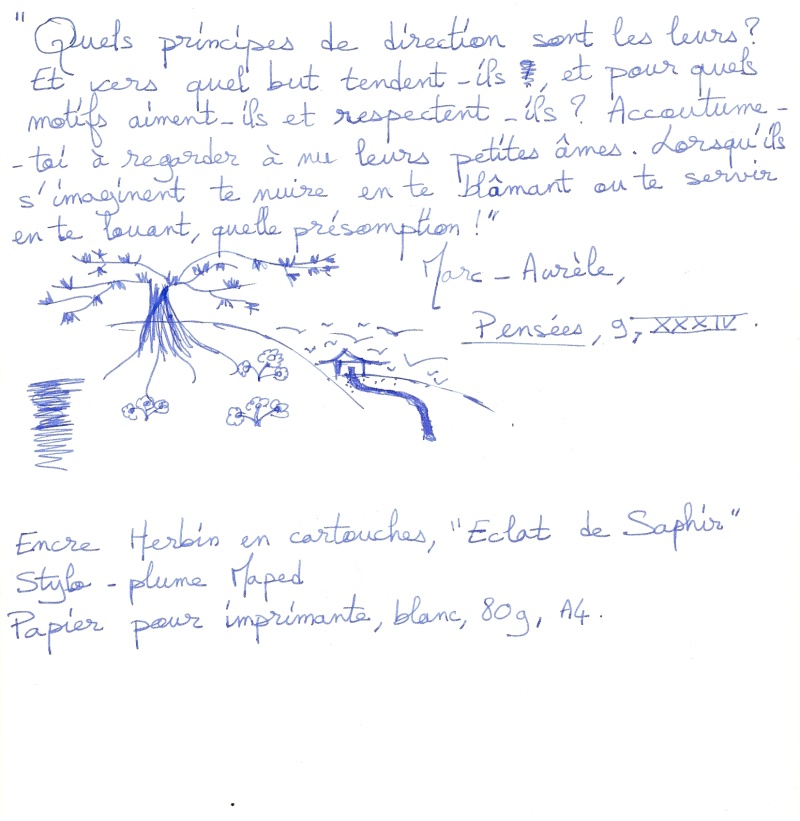 "Quels principes de direction sont les leurs?
Et vers quel but tendent-ils, et pour quels
motifs aiment-ils et respectent-ils? Accoutume-
-toi à regarder à nu leurs petites âmes. Lorsqu'ils
s'imaginent te nuire en te blâmant ou te servir
en te louant, quelle présomption!"
Marc-Aurèle,
Pensées, 9, XXXIV.
Encre Herbin en cartouches, "Eclat de Saphir"
Stylo-plume Maped
Papier pour imprimante, blanc, 80g, A4.